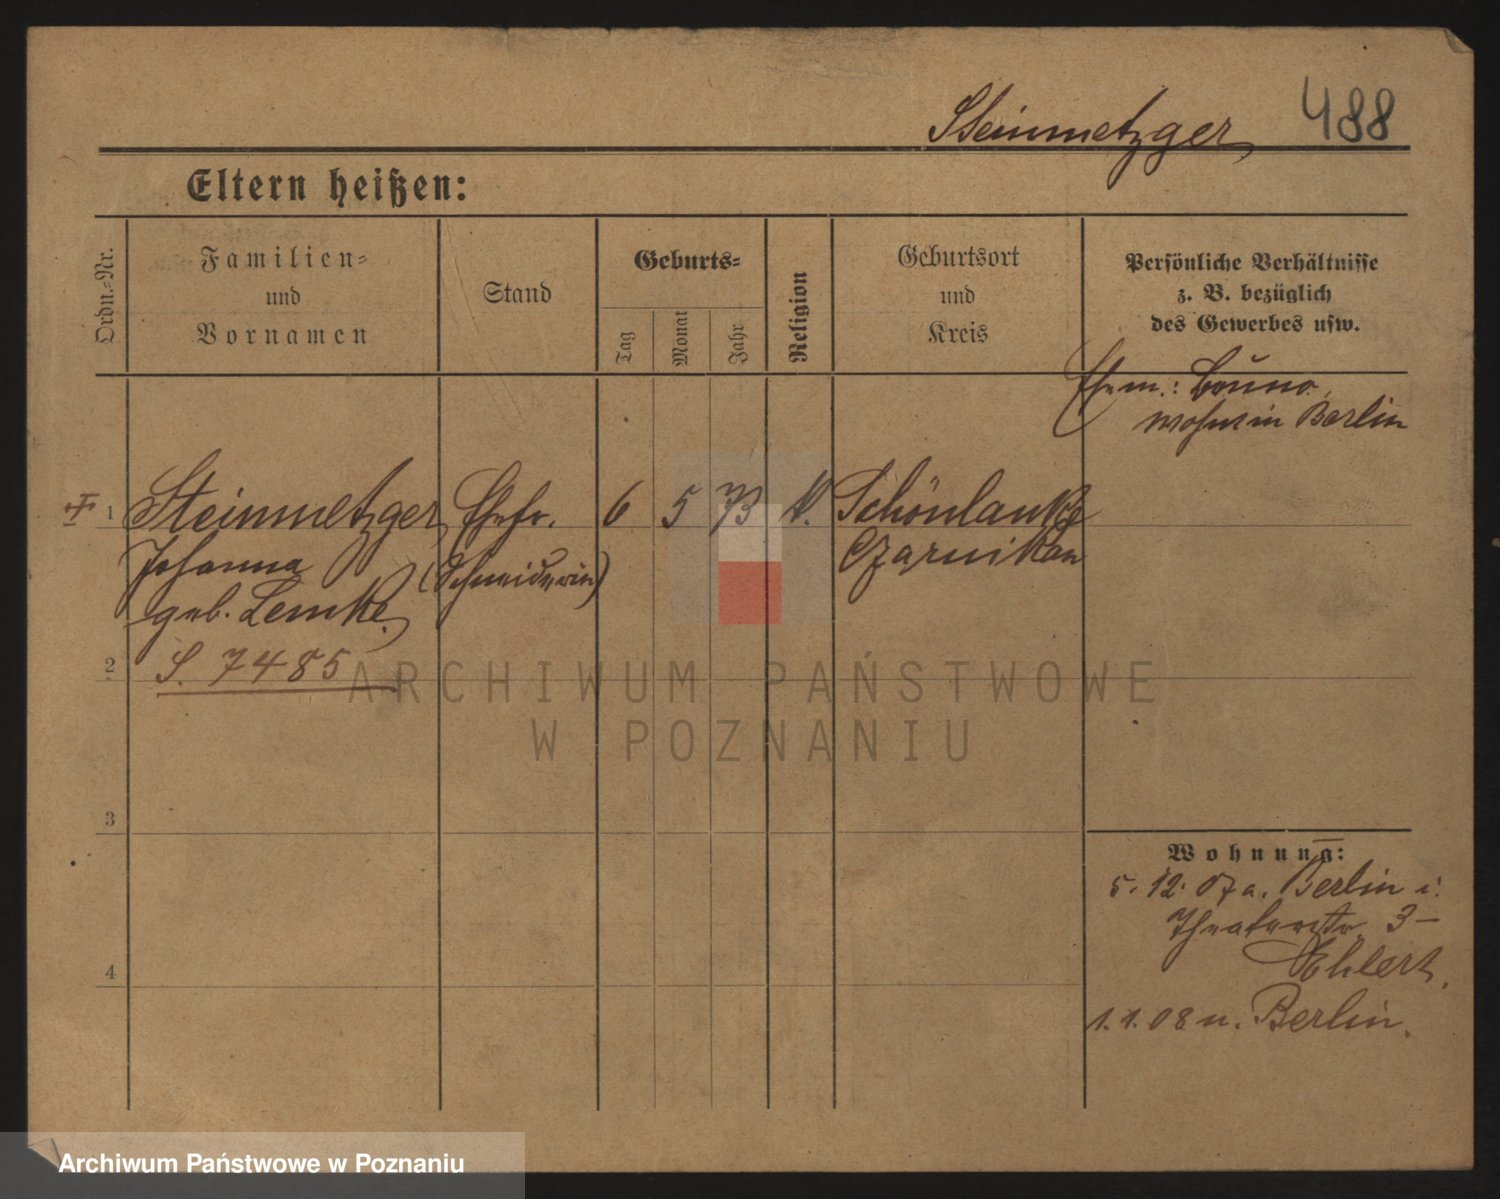 Steinmetzger
488
Eltern heißen:
Ordn.-Nr.
Familien-
und
Vornamen
Stand
Geburts-
Tag
Monat
Jahr
Religion
Geburtsort
und
Kreis
Persönliche Verhältnisse
z. B. bezüglich
des Gewerbes usw.
Ehem.: Bruno,
wohnt in Berlin
1 Steinmetzger Ehefr. 6 5 73 Schönlanke
Johanna (Schneiderin) Czarnikau
geb. Lemke
2 S. 7485
3
4
Wohnung:
5. 12. 07 a. Berlin i.
Theaterstr. 3 –
Ehlert.
1. 1. 08 n. Berlin.
ARCHIWUM PAŃSTWOWE
W POZNANIU
Archiwum Państwowe w Poznaniu